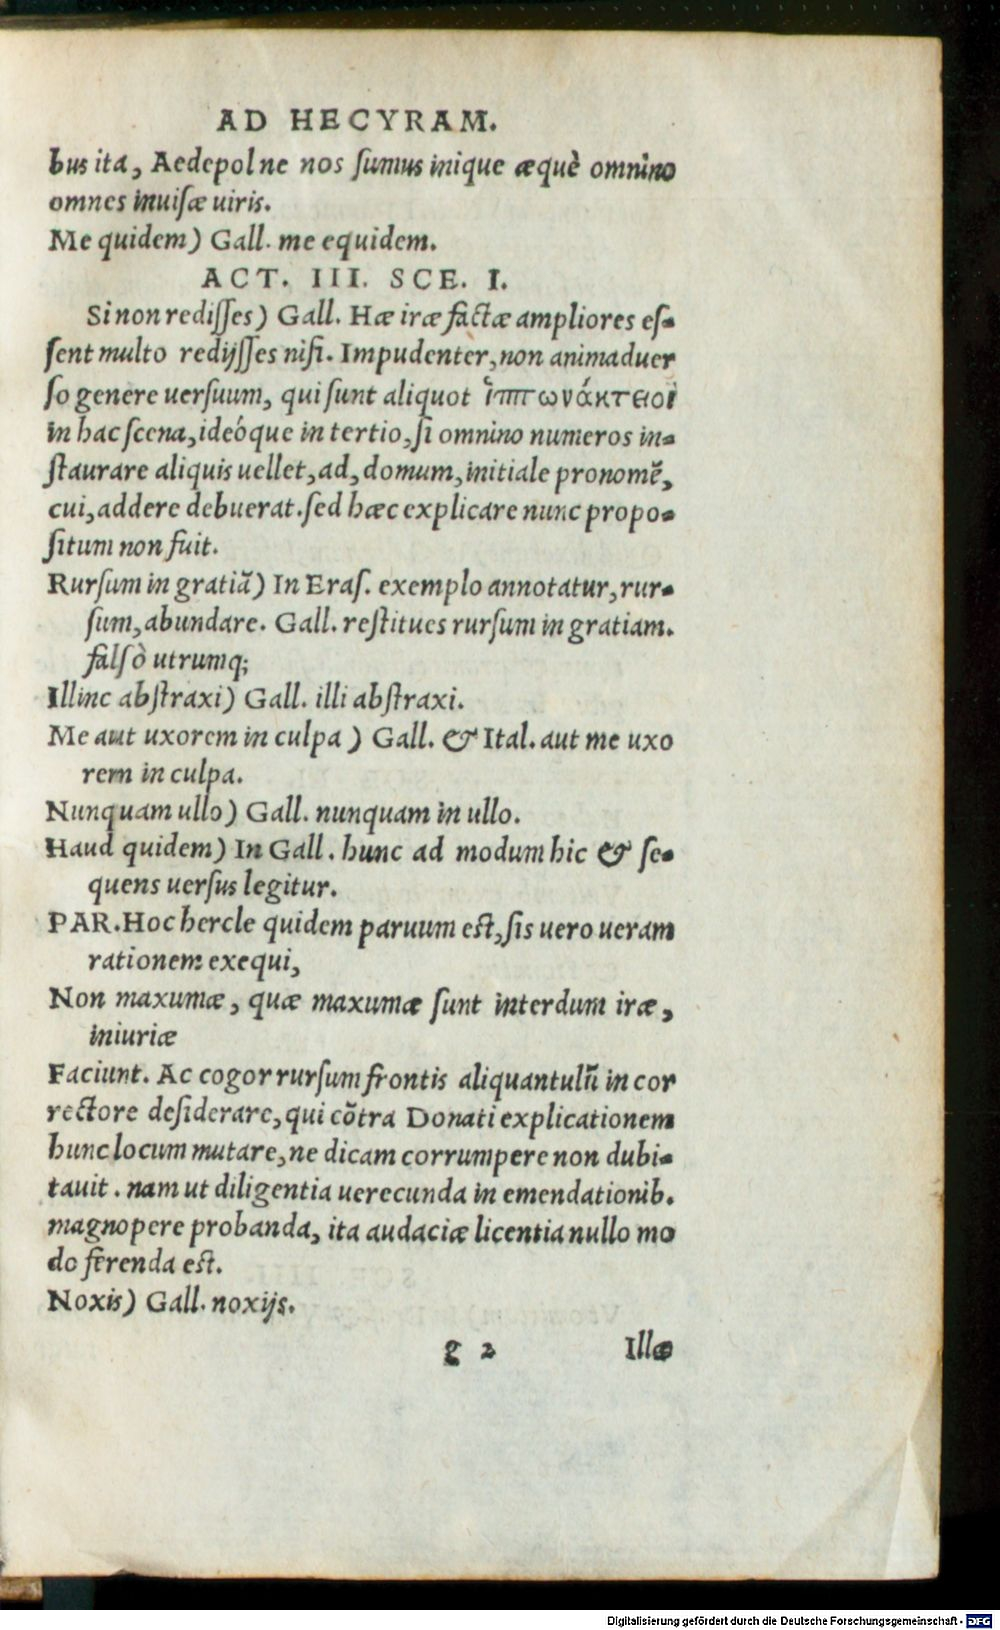 AD HECYRAM.
bus ita, Aedepol ne nos ſumus inique æquè omnino
omnes inuiſæ uiris.
Me quidem) Gall. me equidem.
ACT. III. SCE. I.
Si non rediſſes) Gall. Hæ iræ factæ ampliores eſ-
ſent multo redijſſes niſi. Impudenter, non animaduer
ſo genere uerſuum, qui ſunt aliquot ἱππωνάκτειοι
in hac ſcena, ideóque in tertio, ſi omnino numeros in-
ſtaurare aliquis uellet, ad, domum, initiale pronomē,
cui, addere debuerat. ſed hæc explicare nunc propo-
ſitum non fuit.
Rurſum in gratiā) In Eraſ. exemplo annotatur, rur-
ſum, abundare. Gall. reſtitues rurſum in gratiam.
falſò utrumq;
Illinc abſtraxi) Gall. illi abſtraxi.
Me aut uxorem in culpa) Gall. & Ital. aut me uxo
rem in culpa.
Nunquam ullo) Gall. nunquam in ullo.
Haud quidem) In Gall. hunc ad modum hic & ſe-
quens uerſus legitur.
PAR. Hoc hercle quidem paruum eſt, ſis uero ueram
rationem exequi,
Non maxumæ, quæ maxumæ ſunt interdum iræ,
iniuriæ
Faciunt. Ac cogor rurſum frontis aliquantulū in cor
rectore deſiderare, qui cōtra Donati explicationem
hunc locum mutare, ne dicam corrumpere non dubi-
tauit. nam ut diligentia uerecunda in emendationib.
magnopere probanda, ita audaciæ licentia nullo mo
do ferenda eſt.
Noxis) Gall. noxijs.
g 2 Illæ
Digitalisierung gefördert durch die Deutsche Forschungsgemeinschaft - DFG